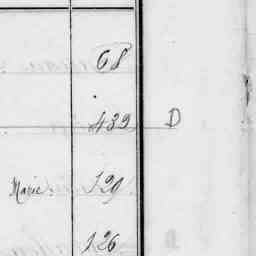 68
439 D
Marie. 129
126